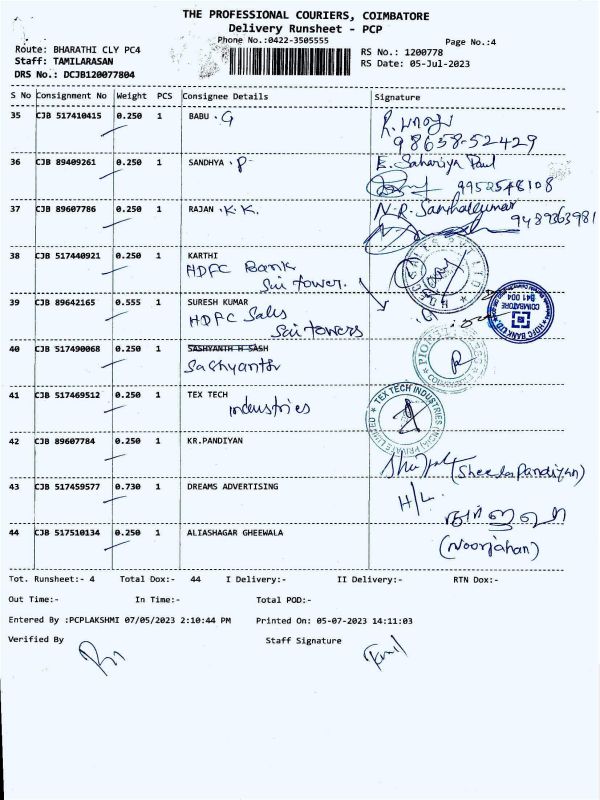 THE PROFESSIONAL COURIERS, COIMBATORE
Delivery Runsheet - PCP
Phone No.:0422-3505555
Page No.:4
Route: BHARATHI CLY PC4
RS No.: 1200778
Staff: TAMILARASAN
RS Date: 05-Jul-2023
DRS No.: DCJB120077804
S No Consignment No Weight PCS Consignee Details Signature
35 CJB 517410415 0.250 1 BABU . G
98658-52429
36 CJB 89409261 0.250 1 SANDHYA . P E. Sahariya Paul
9952548108
37 CJB 89607786 0.250 1 RAJAN . K. K. N. R. Santhakumar
9489363981
38 CJB 517440921 0.250 1 KARTHI
HDFC Bank
Sai tower.
39 CJB 89642165 0.555 1 SURESH KUMAR
HDFC Sales
Sai towers
HDFC BANK LTD
COIMBATORE
641 004
40 CJB 517490068 0.250 1 SASHYANTH H SASH
Sashyanth
41 CJB 517469512 0.250 1 TEX TECH
industries
TEX TECH INDUSTRIES (INDIA) PRIVATE LIMITED
42 CJB 89607784 0.250 1 KR.PANDIYAN
(Sheela Pandiyan)
43 CJB 517459577 0.730 1 DREAMS ADVERTISING H/L.
44 CJB 517510134 0.250 1 ALIASHAGAR GHEEWALA
(Noorjahan)
Tot. Runsheet:- 4 Total Dox:- 44 I Delivery:- II Delivery:- RTN Dox:-
Out Time:- In Time:- Total POD:-
Entered By :PCPLAKSHMI 07/05/2023 2:10:44 PM Printed On: 05-07-2023 14:11:03
Verified By Staff Signature